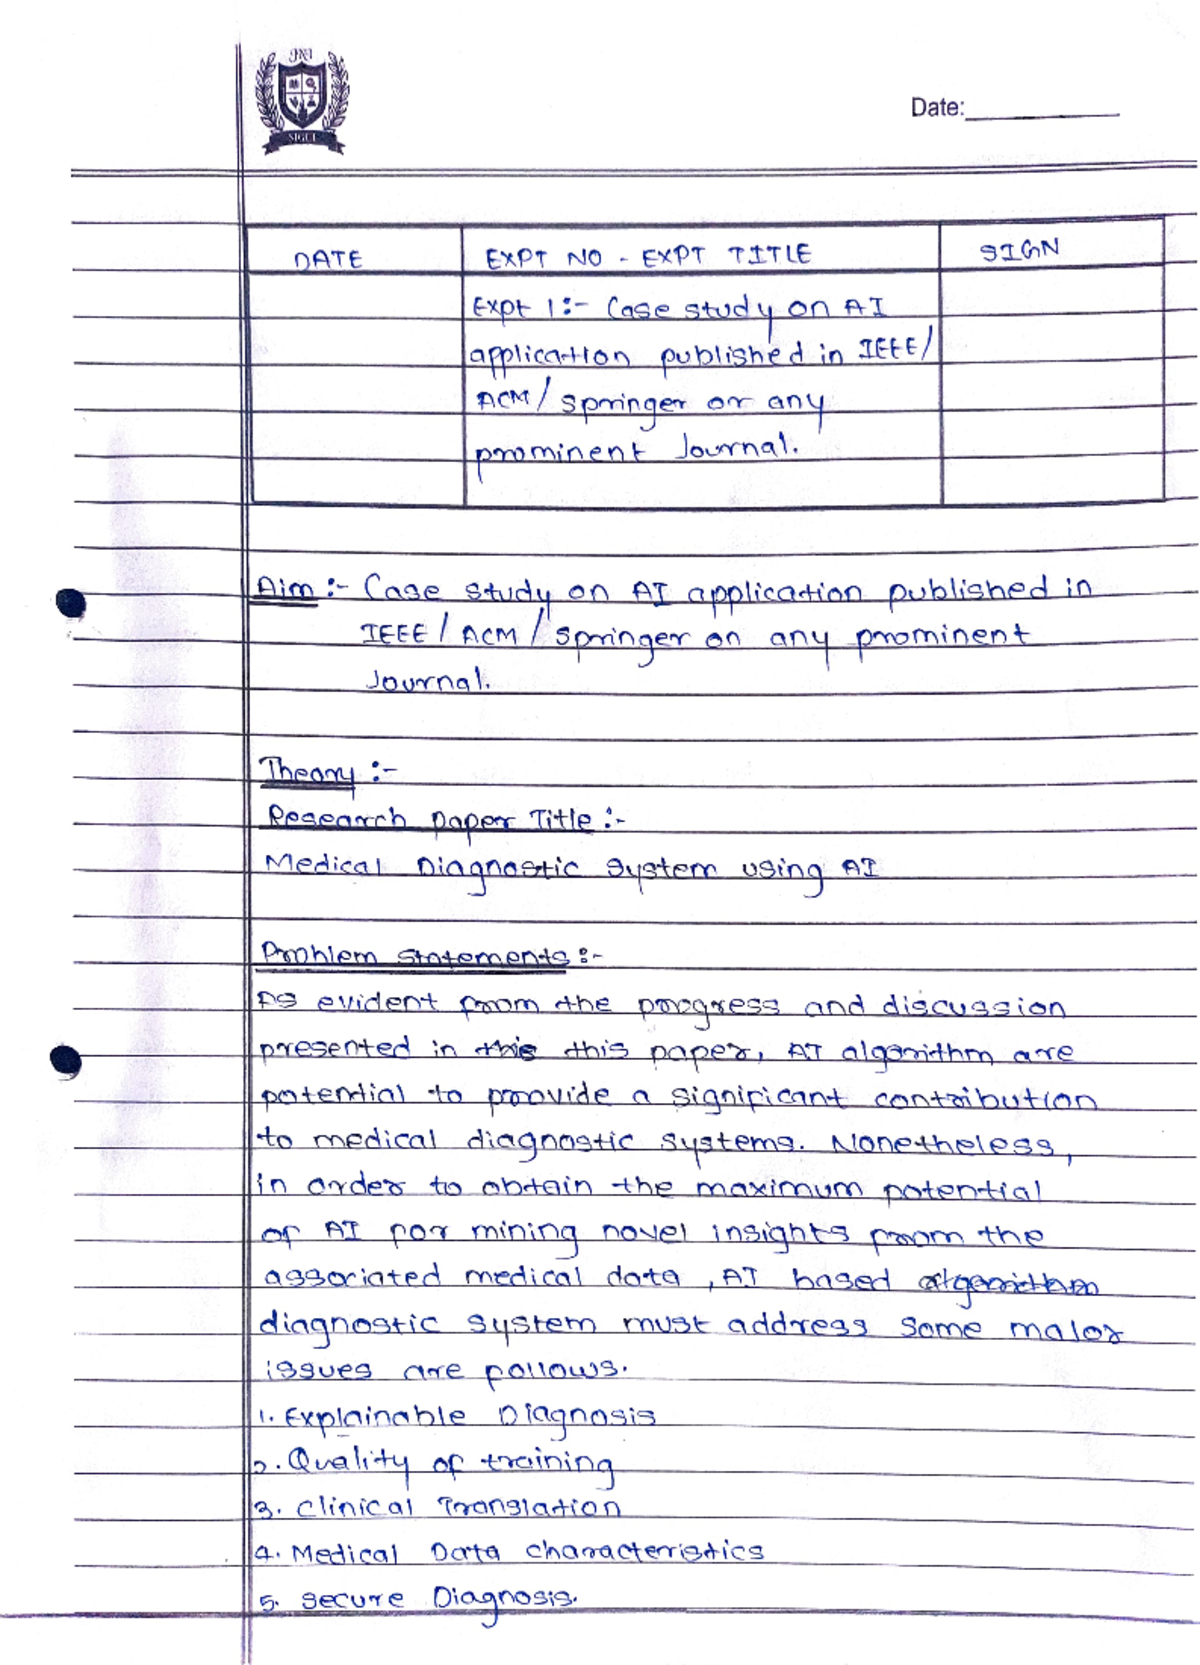 SIGCE
Date:
DATE
EXPT NO - EXPT TITLE
SIGN
Expt 1:- Case study on AI
application published in IEEE/
ACM/ springer or any
prominent Journal.
Aim :- Case study on AI application published in
IEEE / ACM / springer on any prominent
Journal.
Theory :-
Research paper Title :-
Medical Diagnostic System using AI
Problem statements :-
As evident from the progress and discussion
presented in this this paper, AI algorithm are
potential to proovide a significant contribution
to medical diagnostic systems. Nonetheless,
in order to obtain the maximum potential
of AI for mining novel insights from the
associated medical data, AI based algorithm
diagnostic system must address some major
issues are follows.
1. Explainable Diagnosis
2. Quality of training
3. Clinical Translation
4. Medical Data characteristics
5. secure Diagnosis.